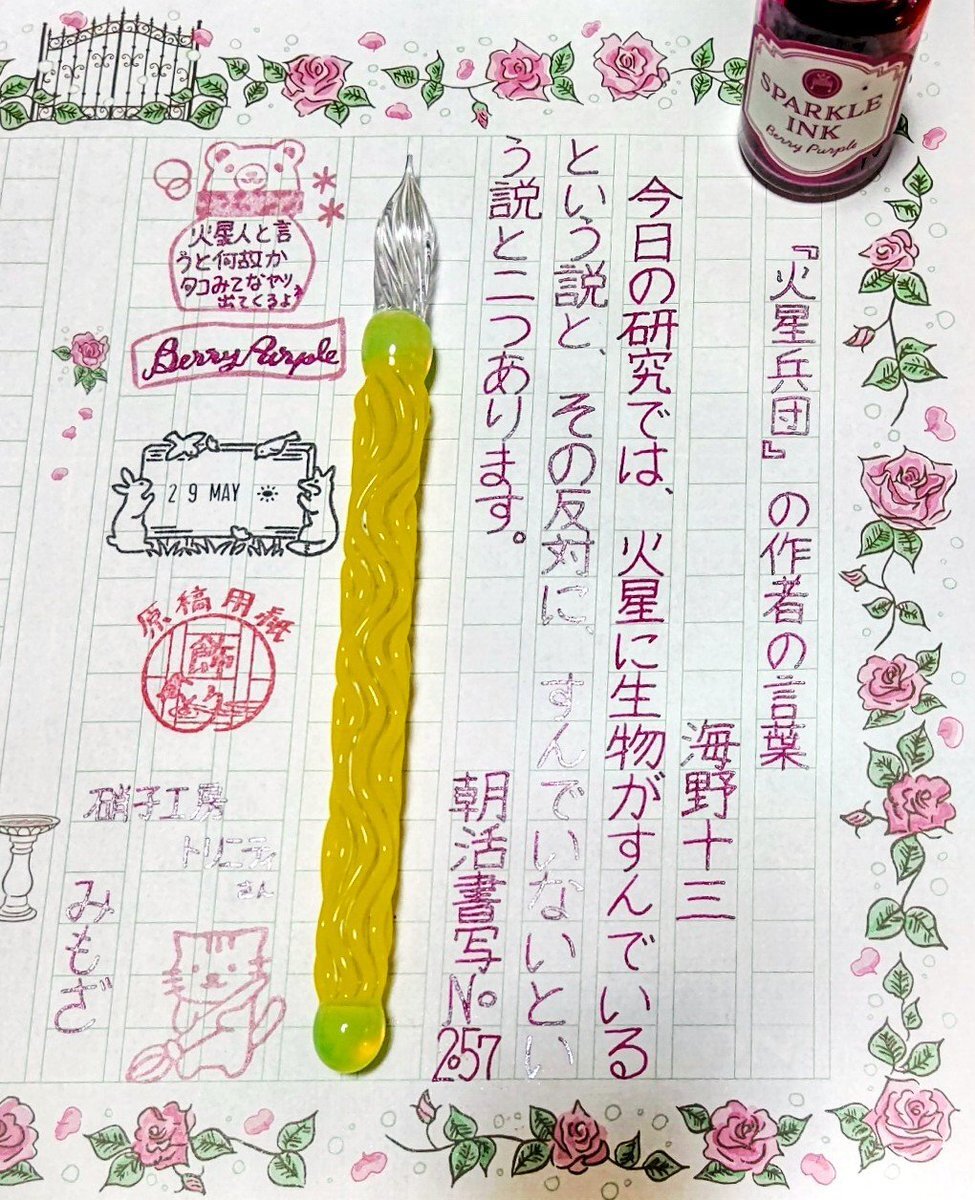 SPARKLE
INK
Berry Purple
『火星兵団』の作者の言葉
海野十三
今日の研究では、火星に生物がすんでいる
という説と、その反対に、すんでいないとい
う説と二つあります。
朝活書写No.257
火星人と言
うと何故か
タコみてなヤツ
出てくるよね
Berry Purple
29 MAY
原稿用紙
飾
硝子工房
トリニティ
さん
みもざ